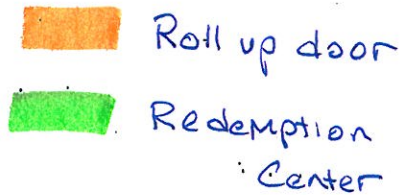 Roll up door
Redemption
Center